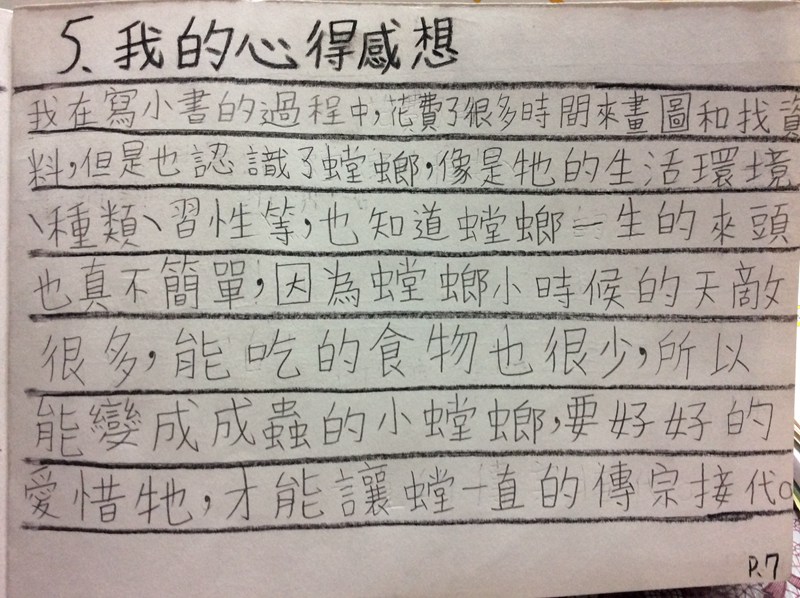 5、我的心得感想
我在寫小書的過程中,花費了很多時間來畫圖和找資
料,但是也認識了螳螂,像是牠的生活環境
、種類、習性等,也知道螳螂一生的來頭
也真不簡單,因為螳螂小時候的天敵
很多,能吃的食物也很少,所以
能變成成蟲的小螳螂,要好好的
愛惜牠,才能讓螳一直的傳宗接代。
P.7